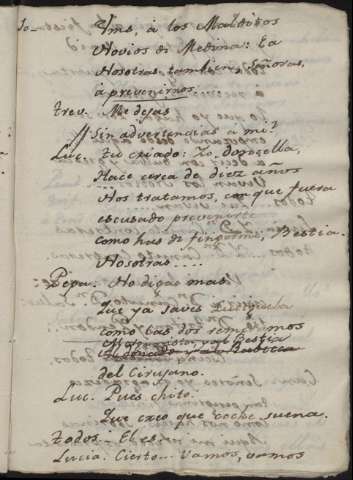 Vms, á los Malditos
Novios de Medina: Ea
Nosotras tambien, Señoras,
á prevenirnos.
trev. Me dejas
Sin advertencias a mi?
Luc. tu criado: Yo donzella,
Hace cerca de diez años
Nos tratamos, con que fuera
escusado prevenirte
como has de fingirme, Bestia.
Nosotras....
Pepa. No digas mas.
que ya saves
como las dos
y la Bestia
del Cirujano.
Luc. Pues chito.
Que creo que coche suena.
todos. El es.
Lucia. Cierto... Vamos, vamos